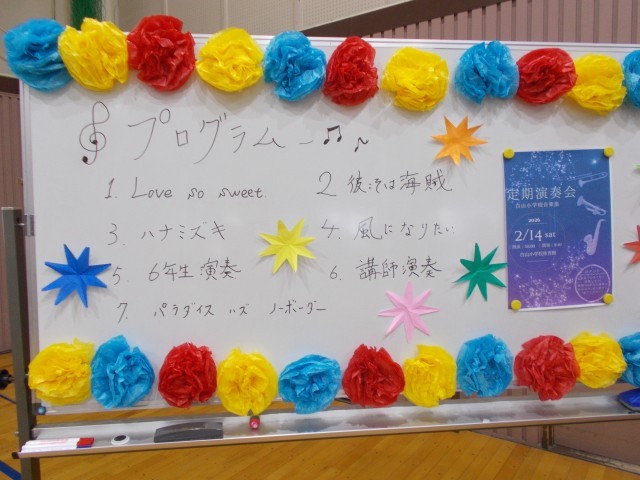 プログラム
1. Love so sweet
2 彼こそは海賊
3. ハナミズキ
4. 風になりたい
5. 6年生演奏
6. 講師演奏
7. パラダイス ハズ ノーボーダー
定期演奏会
2/14 sat